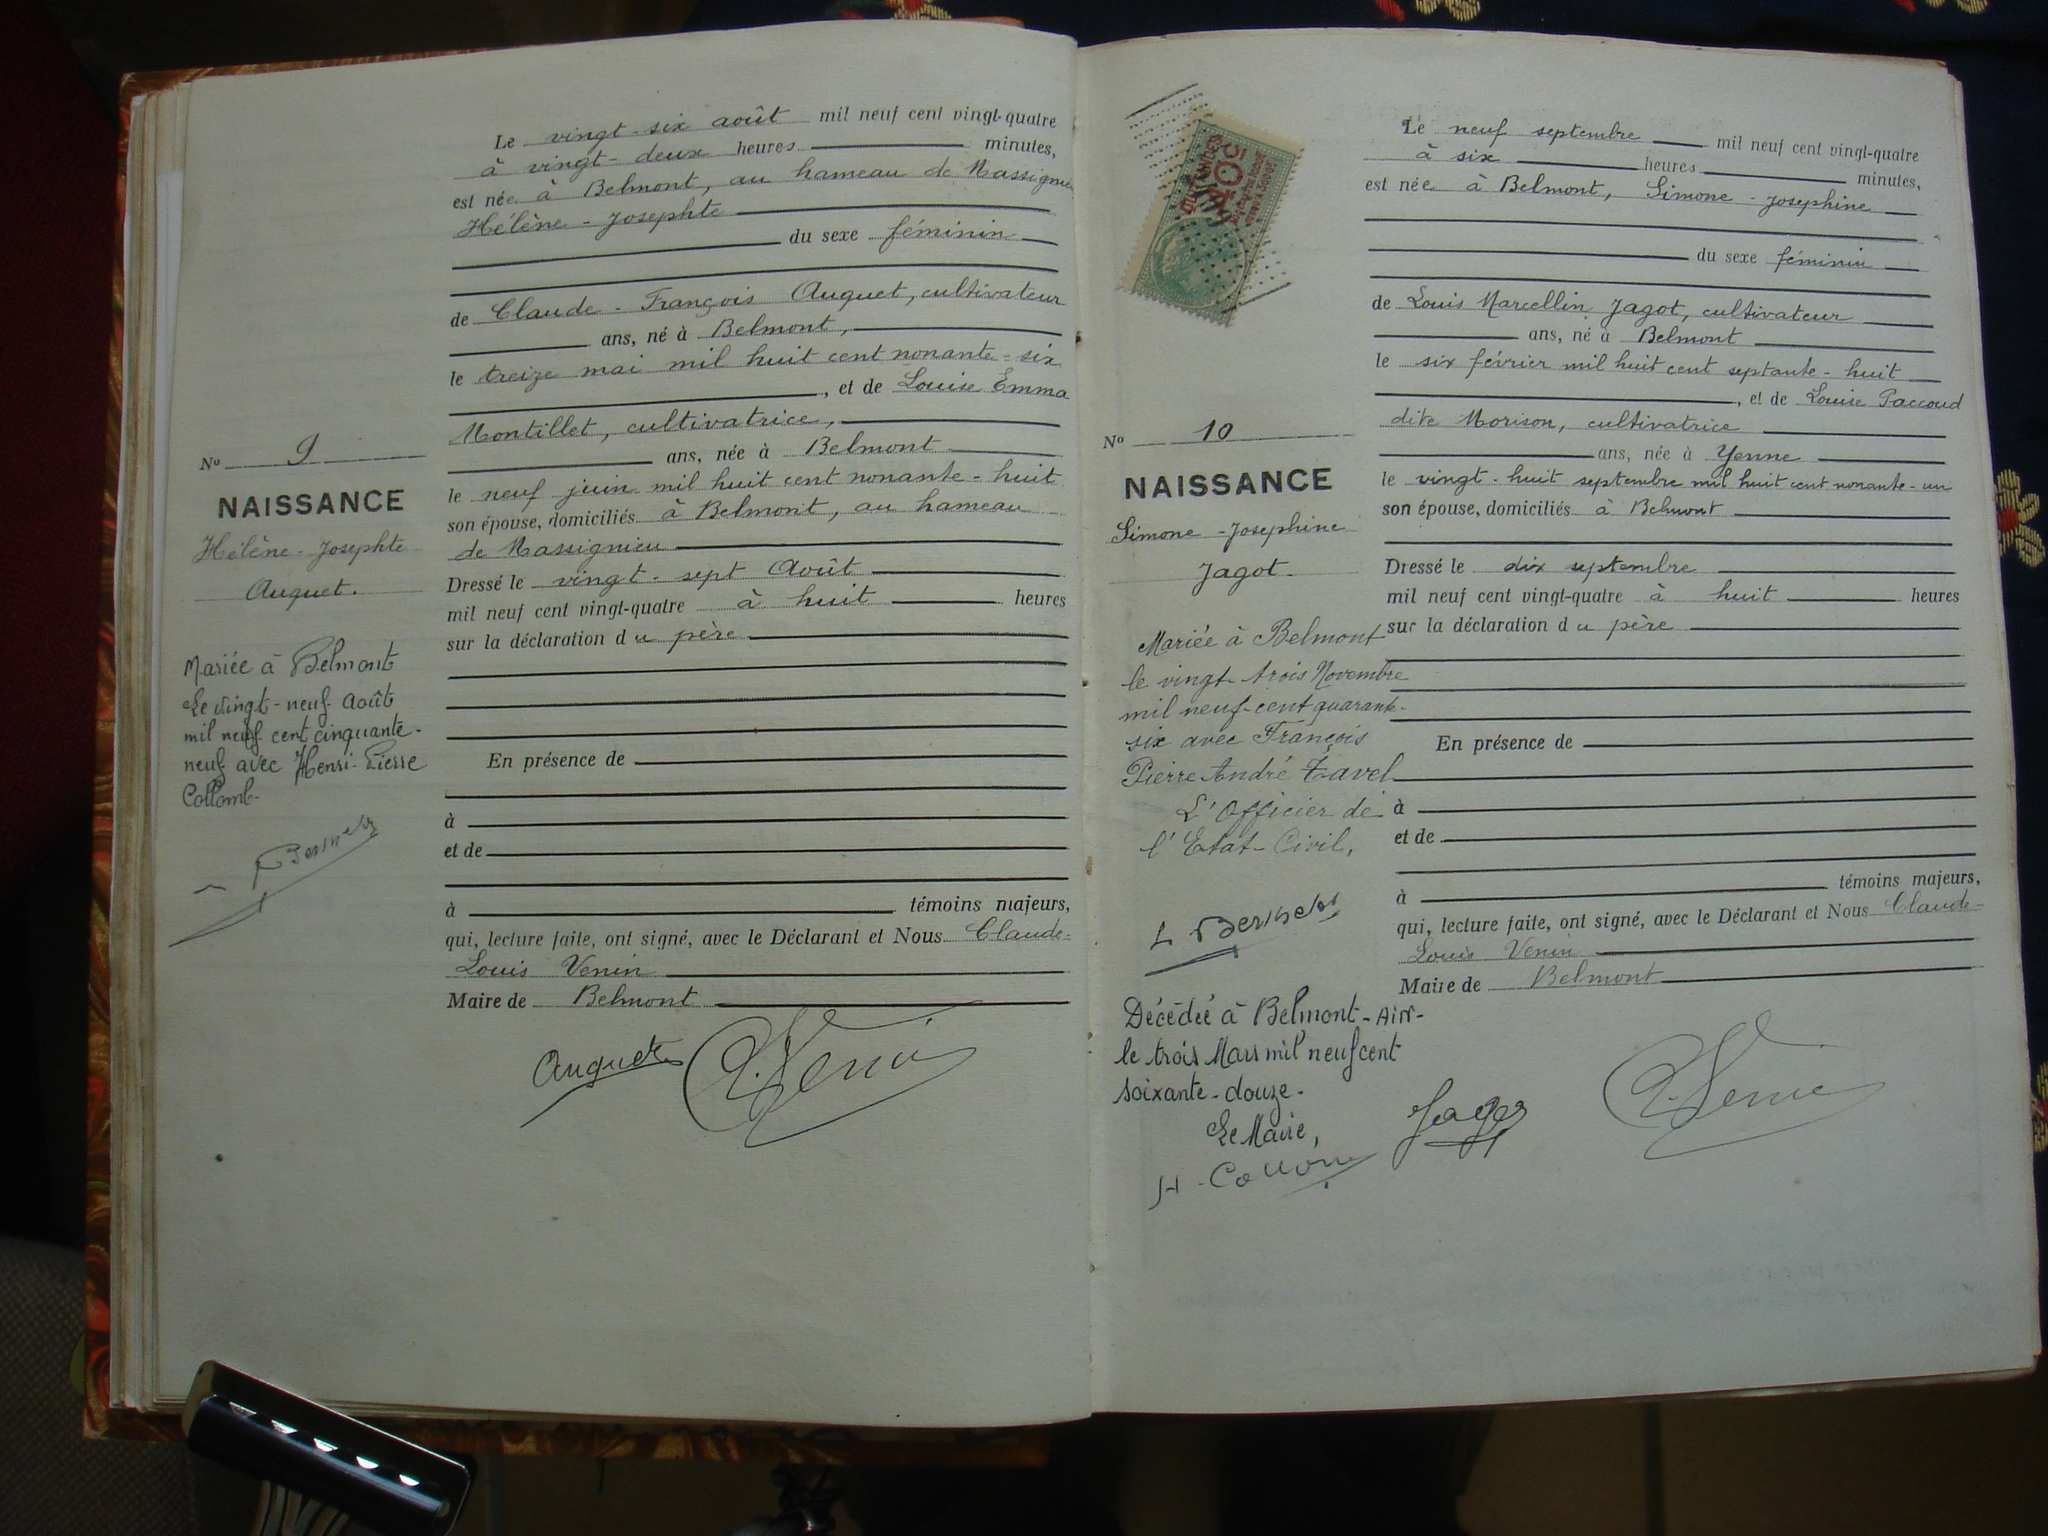 Le vingt-six août mil neuf cent vingt-quatre
à vingt-deux heures minutes,
est née à Belmont, au hameau de Massignieu
Hélène-Josephte
du sexe féminin
de Claude-François Auguet, cultivateur
ans, né à Belmont,
le treize mai mil huit cent nonante-six
, et de Louise Emma
Montillet, cultivatrice,
ans, née à Belmont
le neuf juin mil huit cent nonante-huit
son épouse, domiciliés à Belmont, au hameau
de Massignieu
Dressé le vingt-sept Août
mil neuf cent vingt-quatre à huit heures
sur la déclaration du père
En présence de
à
et de
à témoins majeurs,
qui, lecture faite, ont signé, avec le Déclarant et Nous Claude-
Louis Venin
Maire de Belmont
Auguet
No 9
NAISSANCE
Hélène-Josephte
Auguet.
Mariée à Belmont
Le vingt-neuf Août
mil neuf cent cinquante-
neuf avec Henri-Pierre
Collomb-
Le neuf septembre mil neuf cent vingt-quatre
à six heures minutes,
est née à Belmont, Simone-Josephine
du sexe féminin
de Louis Marcellin Jagot, cultivateur
ans, né à Belmont
le six février mil huit cent septante-huit
, et de Louise Paccoud
dite Morison, cultivatrice
ans, née à Yenne
le vingt-huit septembre mil huit cent nonante-un
son épouse, domiciliés à Belmont
Dressé le dix septembre
mil neuf cent vingt-quatre à huit heures
sur la déclaration du père
En présence de
à
et de
à témoins majeurs,
qui, lecture faite, ont signé, avec le Déclarant et Nous Claude-
Louis Venin
Maire de Belmont
No 10
NAISSANCE
Simone-Josephine
Jagot.
Mariée à Belmont
le vingt-trois Novembre
mil neuf-cent quarante-
six avec François
Pierre André Tavel
L'Officier de
l'Etat-Civil,
Décédée à Belmont-Ain-
le trois Mars mil neuf cent
soixante-douze-
Le Maire,
Jagot